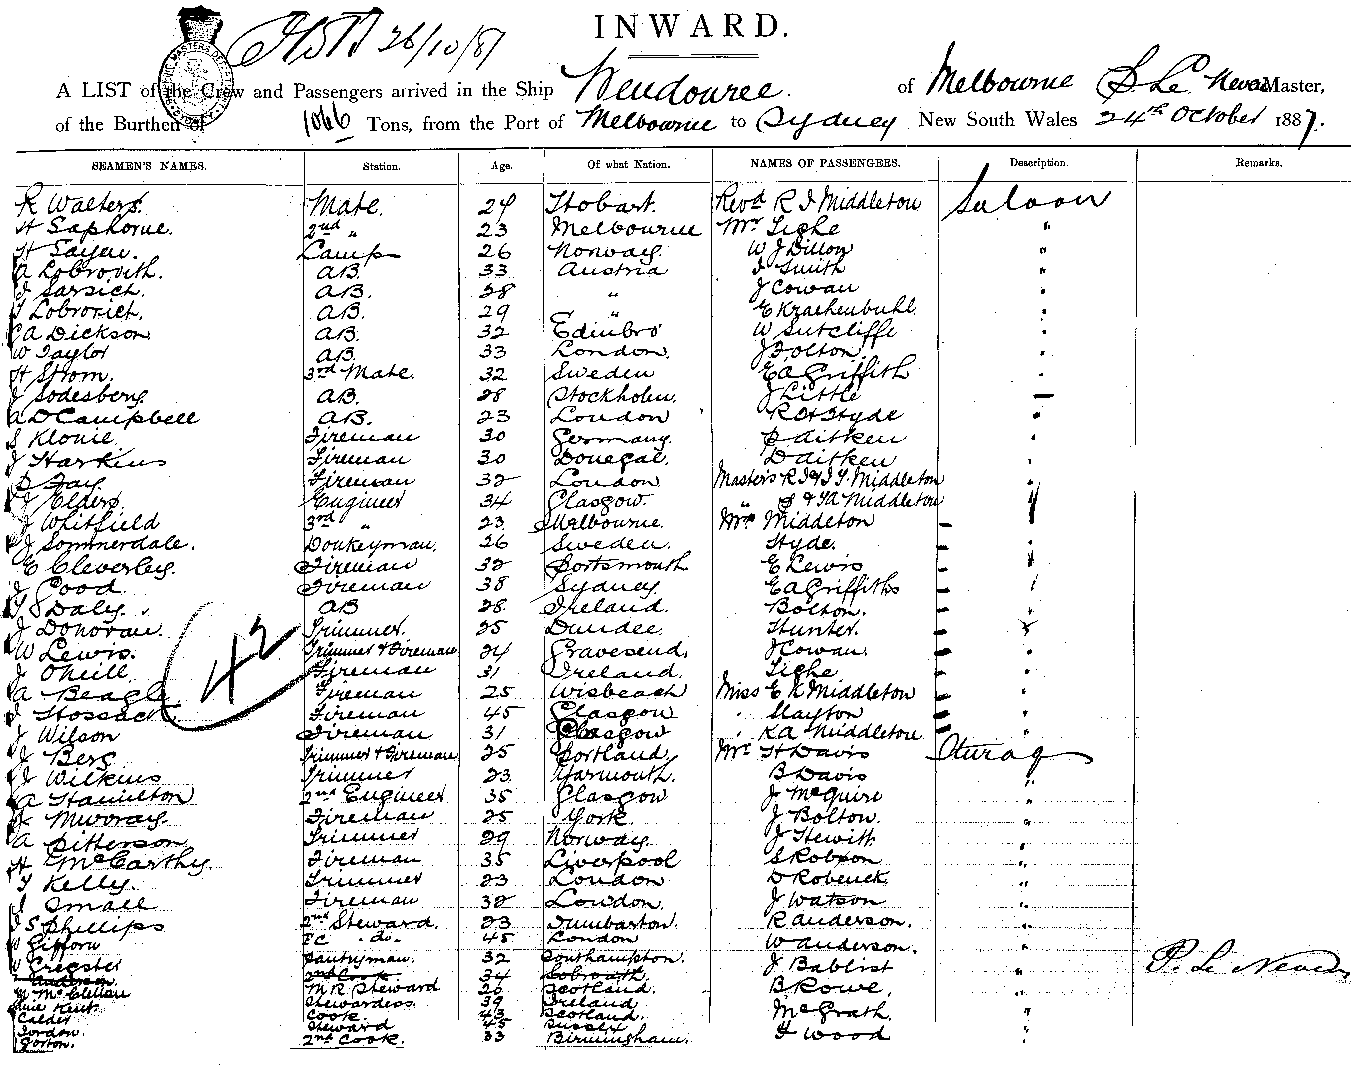 INWARD.
26/10/87
A LIST of the Crew and Passengers arrived in the Ship Wendouree of Melbourne Master,
of the Burthen of 1066 Tons, from the Port of Melbourne to Sydney New South Wales 24th October 1887.
SEAMEN'S NAMES. Station. Age. Of what Nation. NAMES OF PASSENGERS. Description. Remarks.
R Walters. Mate. 24 Hobart. Revd R I Middleton Saloon
H Saphorne. 2nd " 23 Melbourne Mr Tighe "
H Lamp 26 Norway W J Dillon "
A Lobrovith. AB. 33 Austria I Smith "
J Sarsich. AB. 28 " J Cowan "
Lobrovich. AB. 29 " E Krachenbuhl "
A Dickson AB. 32 Edinbro' W Sutcliffe "
W Taylor AB. 33 London. J Bolton "
H Strom. 3rd Mate. 32 Sweden EA Griffith "
J Sodesberg AB. 28 Stockholm. J Little
A D Campbell AB. 23 London R H Hyde "
S Klouie Fireman 30 Germany. Aitken "
J Harkins Fireman 30 Donegal. D Aitken "
Fireman 32 London Masters R I & J Y Middleton "
J Elders. Engineer 34 Glasgow. " Middleton "
J Whitfield 3rd " 23 Melbourne. Mrs Middleton
J Sommerdale. Donkeyman. 26 Sweden. Hyde.
E Cleverley. Fireman 32 Portsmouth E Lewis
J Good Fireman 38 Sydney. E A Griffiths
Daly. AB 28 Ireland. Bolton.
J Donovan. Trimmer. 25 Dundee. Hunter.
W Lewis. Trimmer & Fireman 24 Gravesend. J Cowan.
42
J O'Neill Fireman 31 Ireland. Tighe
A Beagle Fireman 25 Wisbeach Miss E K Middleton
J Hossack Fireman 45 Glasgow " Slayton
J Wilson Fireman 31 Glasgow " KA Middleton
J Berg Trimmer & Fireman 25 Portland. Mr H Davis
J Wilkins Trimmer 23 Yarmouth. B Davis "
A Hamilton 2nd Engineer 35 Glasgow J McGuire "
Murray. Fireman 25 York. J Bolton. "
A Pitterson Trimmer 29 Norway. J Hewitt "
H McCarthy. Fireman 35 Liverpool S Robson "
T Kelly. Trimmer 23 London D Robenck "
J Small Fireman 32 London. J Watson "
J S Phillips 2nd Steward. 23 Dumbarton. R Anderson. "
W Gifforn FC do. 45 London W Anderson. "
W Pantryman. 32 Southampton. J Bablist "
Anderson 2nd Cook 34
M McClellan M R Steward 26 Scotland. B Rowe. "
Kent. Stewardess 39 Ireland
Calder Cook. 43 Scotland McGrath. "
Jordon. Steward 45 Sussex
Gorton. 2nd Cook. 33 Birmingham. H Wood "